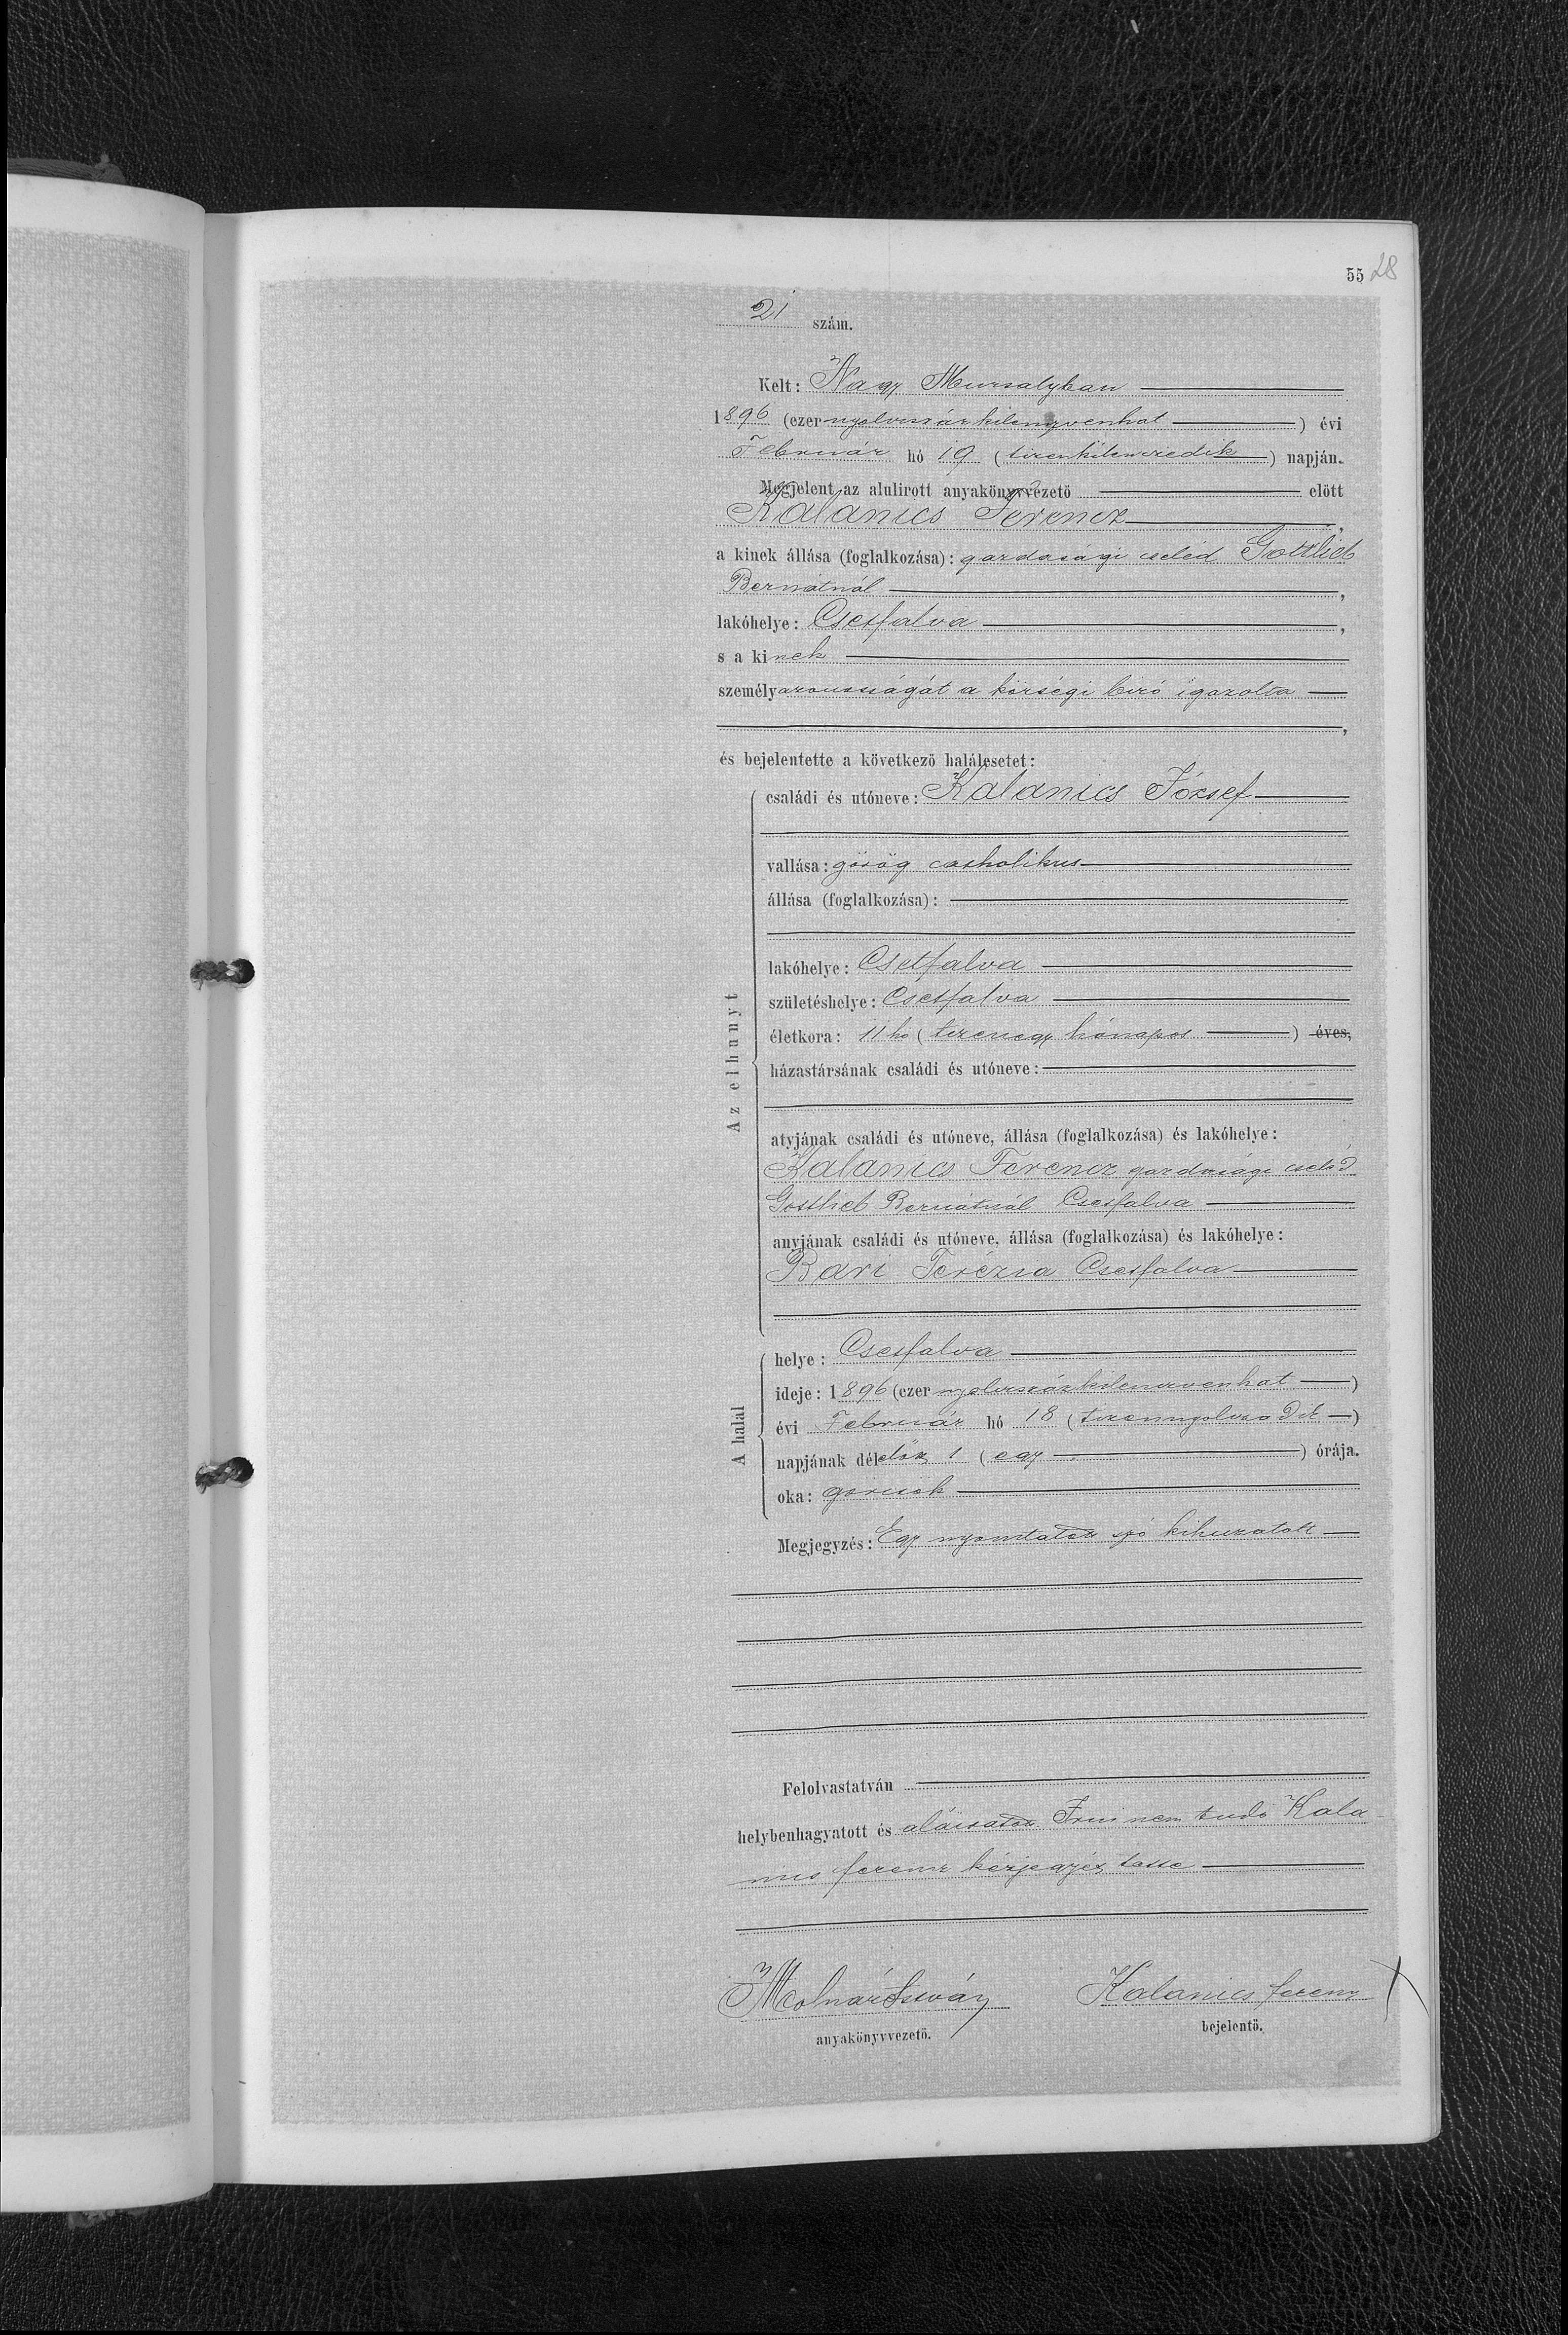 55 28
21 szám.
Kelt: Nagy Muzsalyban
1896 (ezernyolcszázkilenczvenhat) évi
Február hó 19 (tizenkilenczedik) napján.
Megjelent az alulirott anyakönyvvezető előtt
Kalanics Ferencz,
a kinek állása (foglalkozása): gazdasági cseléd Gottlieb
Bernátnál,
lakóhelye: Csetfalva,
s a kinek
személyazonosságát a községi biró igazolta
,
és bejelentette a következő halálesetet:
Az elhunyt
családi és utóneve: Kalanics József
vallása: görög catholikus
állása (foglalkozása):
lakóhelye: Csetfalva
születéshelye: Csetfalva
életkora: 11 hó (tizenegy hónapos) éves,
házastársának családi és utóneve:
atyjának családi és utóneve, állása (foglalkozása) és lakóhelye:
Kalanics Ferencz gazdasági cseléd
Gottlieb Bernátnál Csetfalva
anyjának családi és utóneve, állása (foglalkozása) és lakóhelye:
Bari Terézia Csetfalva
A halál
helye: Csetfalva
ideje: 1896 (ezernyolcszázkilenczvenhat)
évi Február hó 18 (tizennyolczadik)
napjának délelőtt 1 (egy) órája.
oka: görcsök
Megjegyzés: Egy nyomtatott szó kihuzatott
Felolvastatván
helybenhagyatott és aláiratott Irni nem tudó Kala-
nics Ferencz kézjegyét tette
Molnár István
anyakönyvvezető.
Kalanics Ferencz X
bejelentő.